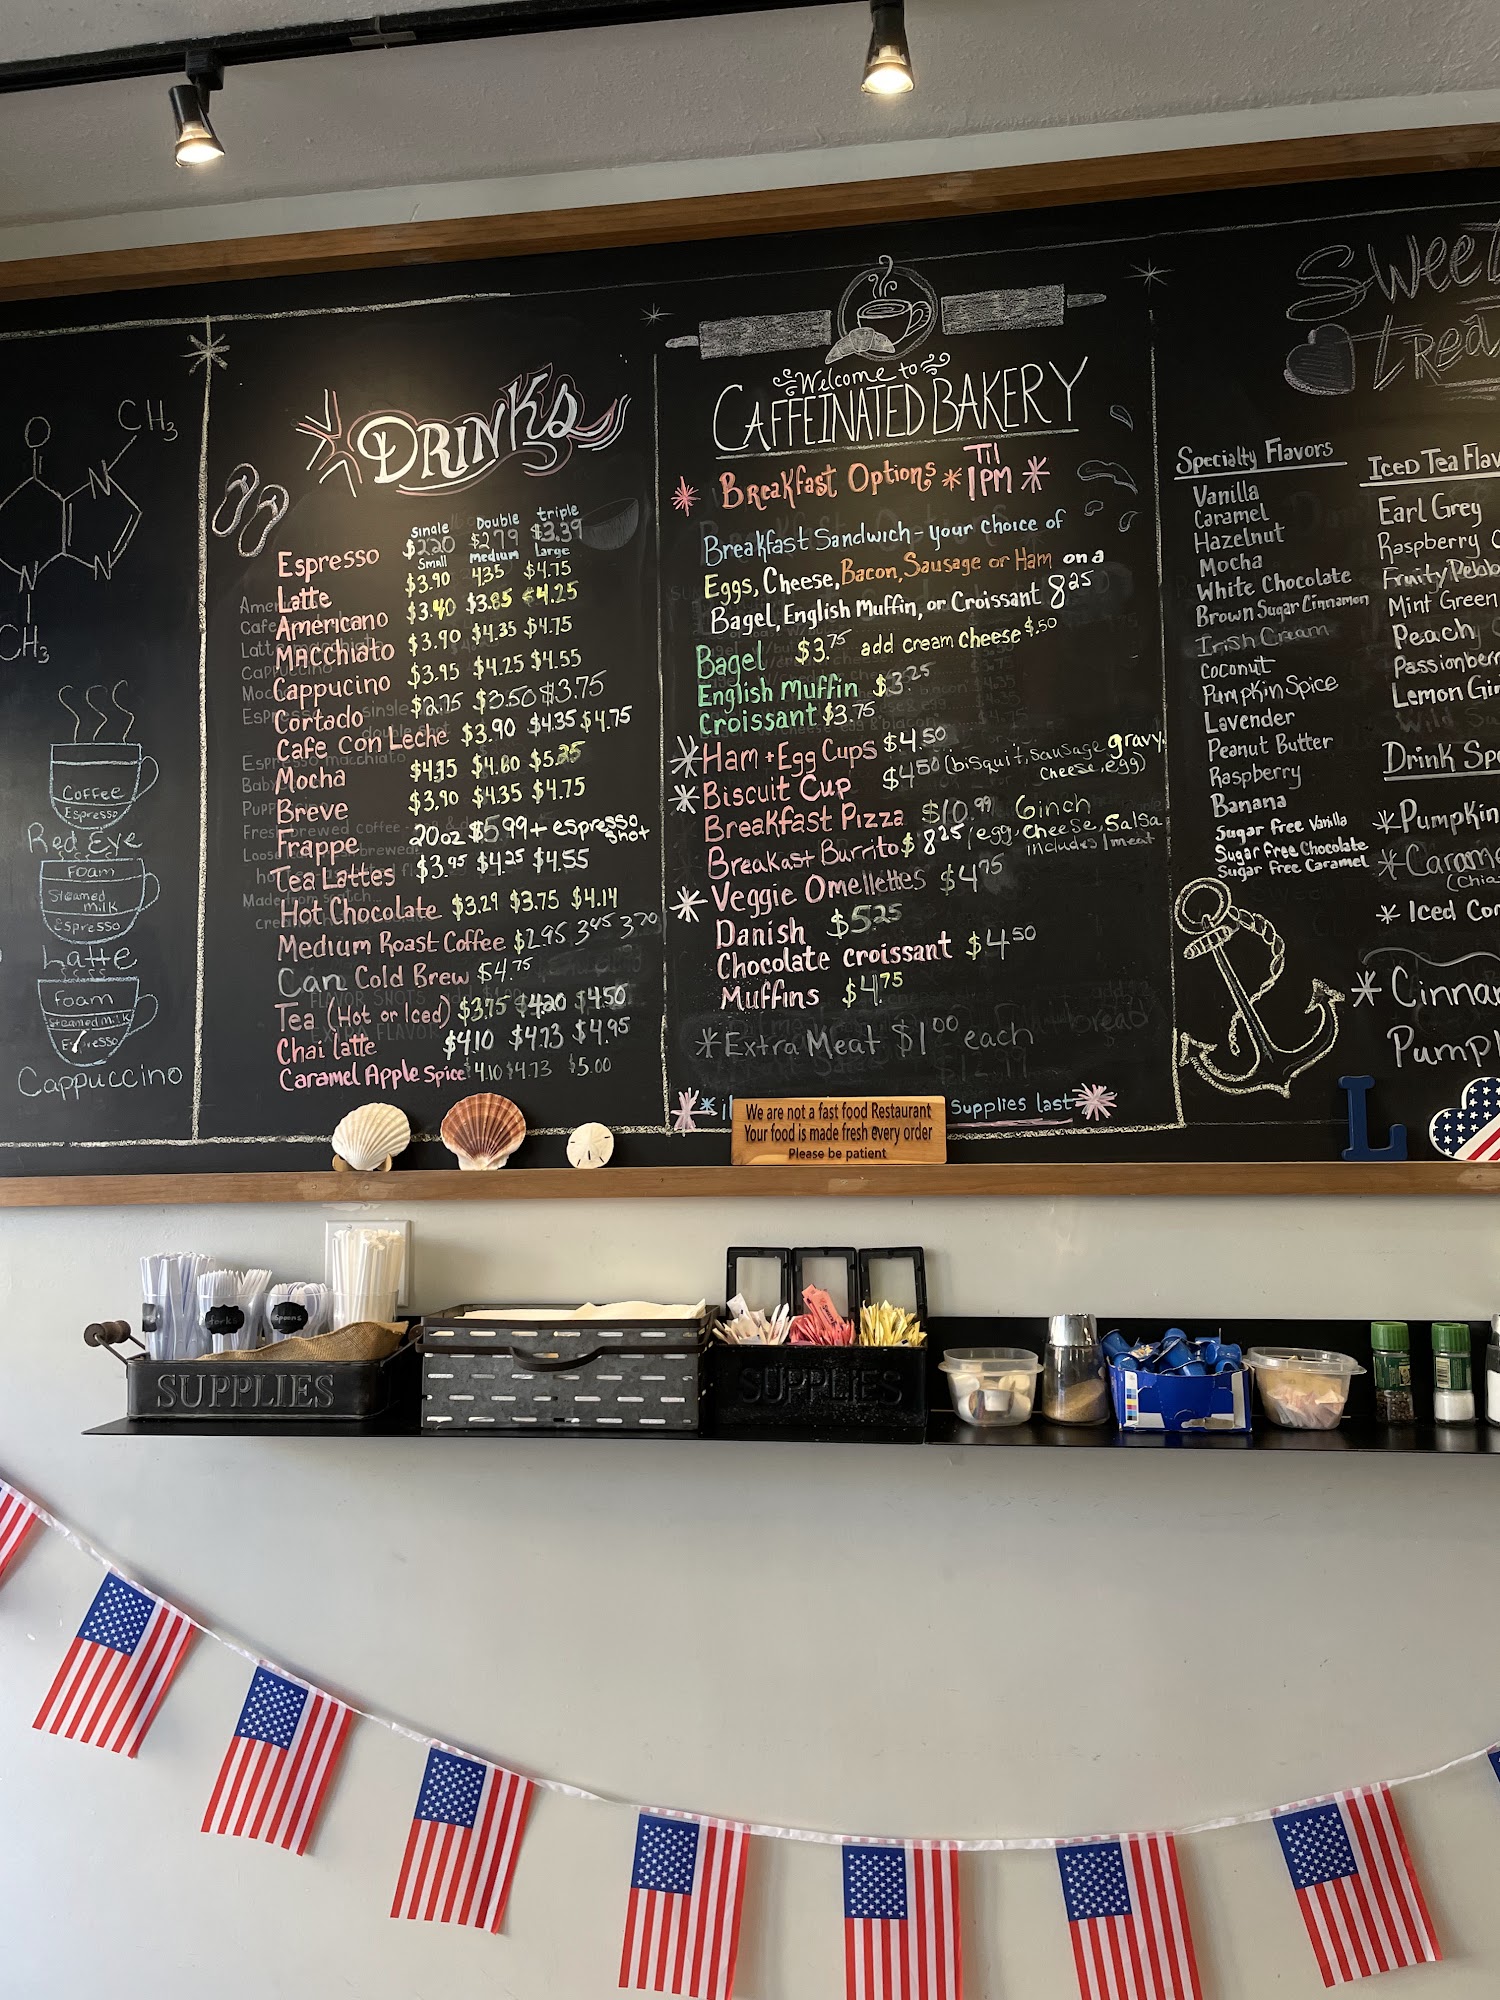 CH3
N
N
N
CH3
Coffee
Espresso
Red Eye
Foam
Steamed
milk
Espresso
Latte
Foam
Steamed Milk
Espresso
Cappuccino
DRINKS
Single Double triple
Espresso $2.20 $2.79 $3.39
Small medium large
Latte $3.90 4.35 $4.75
Americano $3.40 $3.85 $4.25
Macchiato $3.90 $4.35 $4.75
Cappucino $3.95 $4.25 $4.55
Cortado $2.75 $3.50 $3.75
Cafe Con Leche $3.90 $4.35 $4.75
Mocha $4.35 $4.80 $5.25
Breve $3.90 $4.35 $4.75
Frappe 20oz $5.99 + espresso shot
Tea Lattes $3.95 $4.25 $4.55
Hot Chocolate $3.29 $3.75 $4.14
Medium Roast Coffee $2.95 3.45 3.70
Can Cold Brew $4.75
Tea (Hot or Iced) $3.75 $4.20 $4.50
Chai latte $4.10 $4.73 $4.95
Caramel Apple Spice $4.10 $4.73 $5.00
Welcome to
CAFFEINATED BAKERY
* Breakfast Options * Til 1PM *
Breakfast Sandwich - your choice of
Eggs, Cheese, Bacon, Sausage or Ham on a
Bagel, English Muffin, or Croissant 8.25
Bagel $3.75 add cream cheese $.50
English Muffin $3.25
Croissant $3.75
* Ham + Egg Cups $4.50
* Biscuit Cup $4.50 (bisquit, sausage gravy, cheese, egg)
Breakfast Pizza $10.99 6inch
Breakast Burrito $8.25 / egg, cheese, salsa includes 1 meat
* Veggie Omellettes $4.75
Danish $5.25
Chocolate croissant $4.50
Muffins $4.75
* Extra Meat $1.00 each
Supplies last
We are not a fast food Restaurant
Your food is made fresh every order
Please be patient
Sweet
Treat
Specialty Flavors
Vanilla
Caramel
Hazelnut
Mocha
White Chocolate
Brown Sugar Cinnamon
Irish Cream
Coconut
Pumpkin Spice
Lavender
Peanut Butter
Raspberry
Banana
Sugar free Vanilla
Sugar free Chocolate
Sugar free Caramel
Iced Tea Flav
Earl Grey
Raspberry
Fruity Pebb
Mint Green
Peach
Passionberr
Lemon Gin
Drink Spe
* Pumpkin
* Carame
(Chia
* Iced Co
* Cinna
Pump
L
Forks
Spoons
SUPPLIES
SUPPLIES